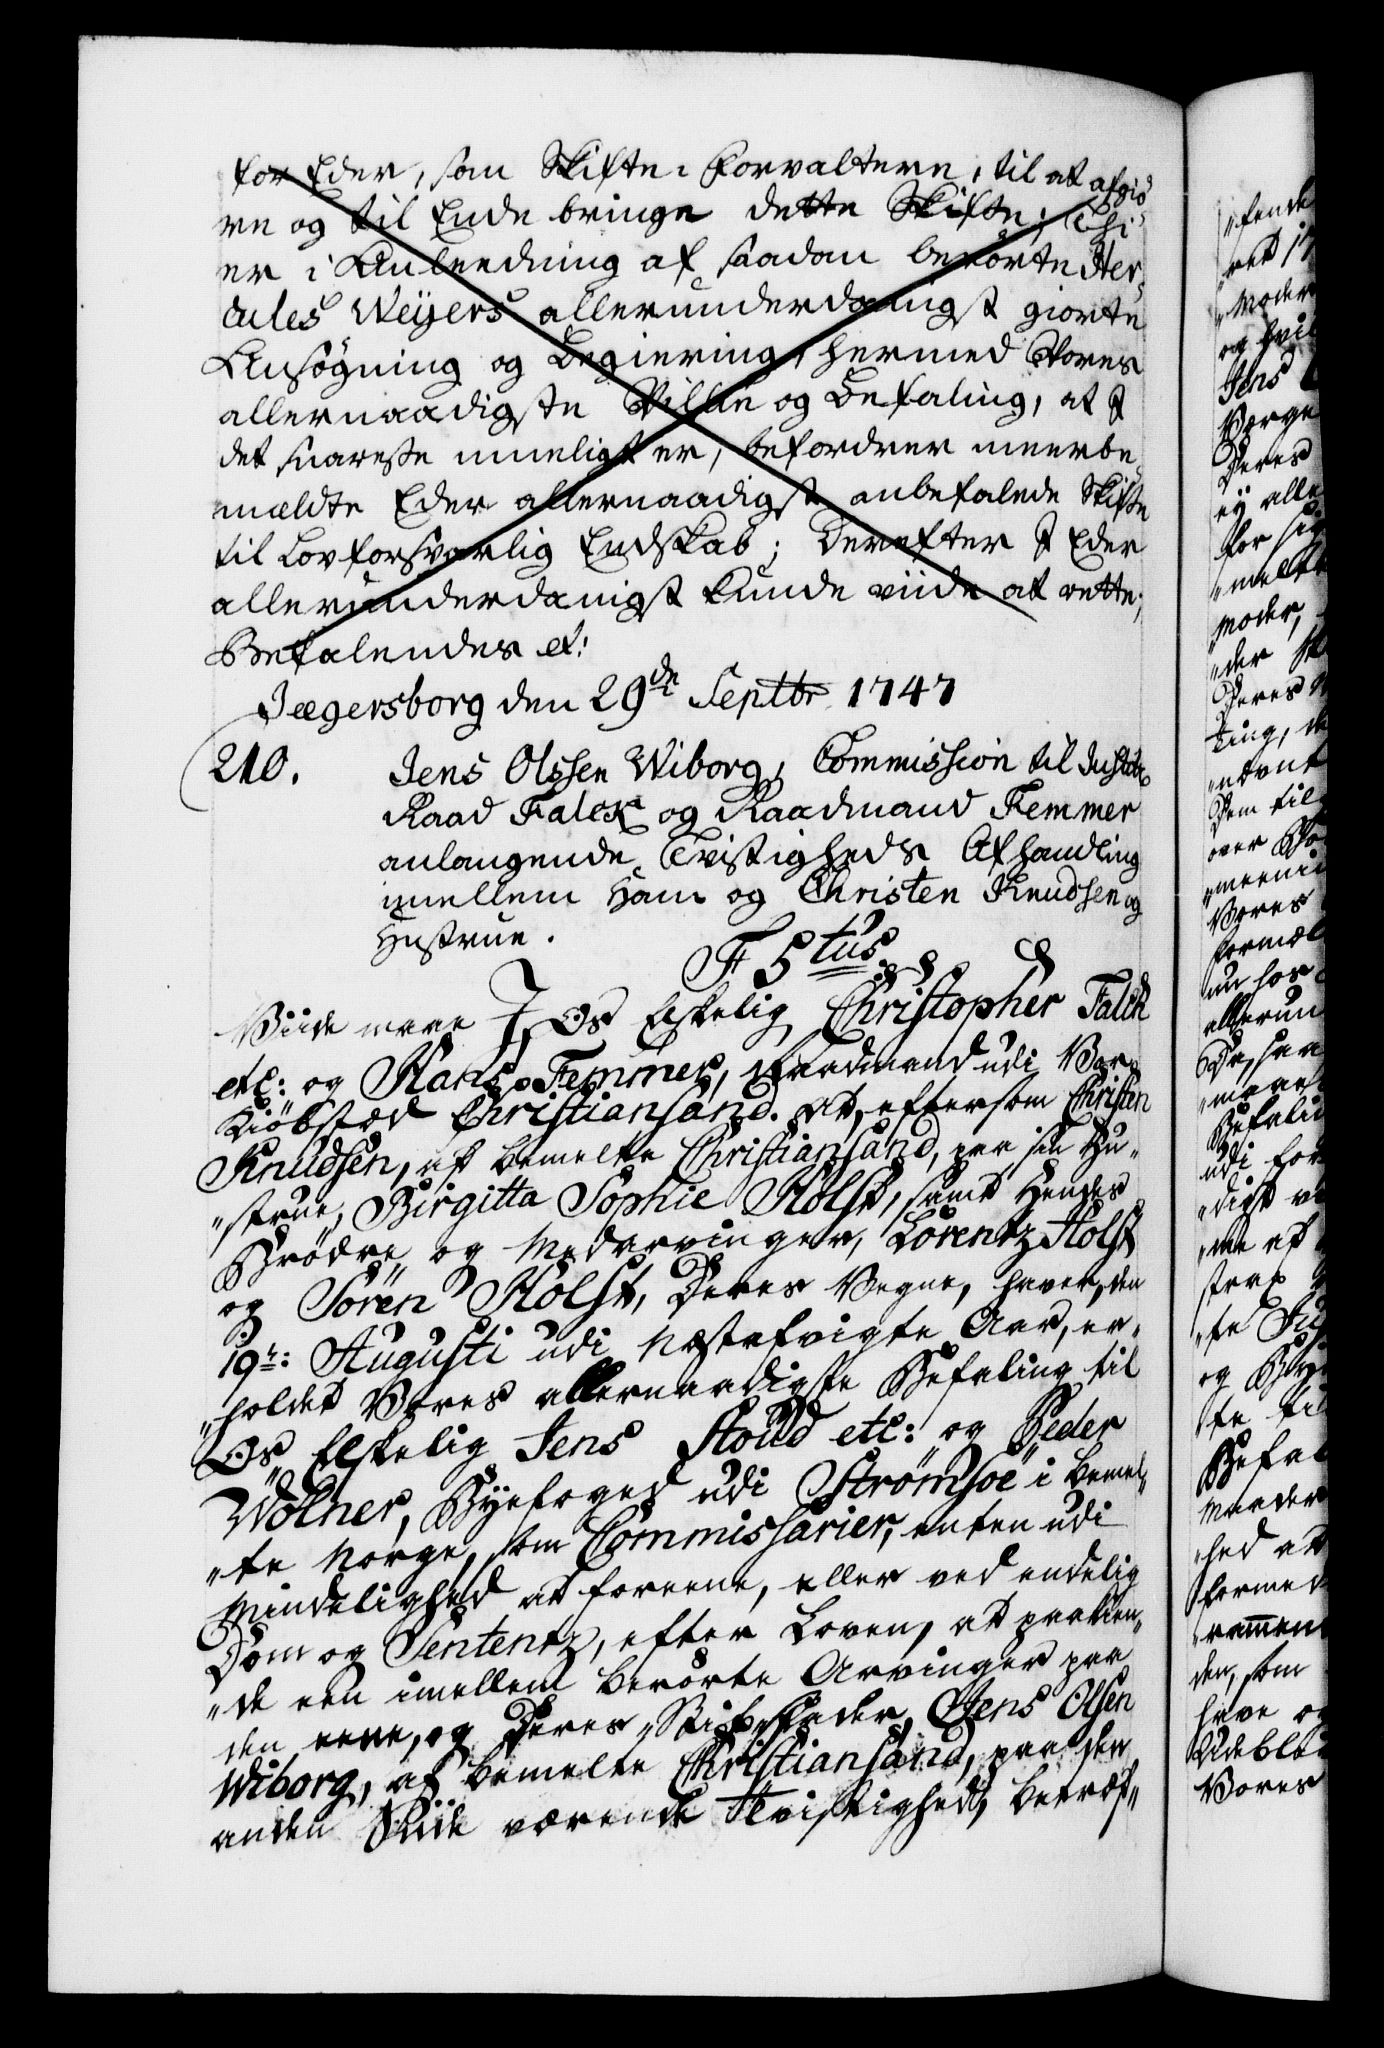 for Eder, som Skifte-Forvaltere, til at afgiö
re og til Ende bringe dette Skifte; Thi
er i Anleedning af saadan berörte Her
cules Weyers allerunderdanigst giorte
Ansögning og Begiering, hermed Vores
allernaadigste Villie og Befaling, at I
det snareste mueligt er, befordrer meerbe
mældte Eder allernaadigst anbefalede Skifte
til Lovforsvarlig Endskab; Derefter I Eder
allerunderdanigst kunde viide at rette,
Befalendes et:
Jægersborg den 29de Septbr 1747
210. Jens Olssen Wiborg, Commission til Justitz
Raad Falck og Raadmand Femmer
anlangende Tvistigheds Afhandling
imellem Ham og Christen Knudsen og
Hustrue.
F 5tus
Viide maae I, Os Elskelig Christopher Falck
etc: og Hans Femmer, Raadmand udi Vor
Kiöbsted Christiansand. At, eftersom Christen
Knudsen, af bemelte Christiansand, paa sin Hu„
„strue, Birgitta Sophie Holst, samt Hendes
Brödre og Medarvinger, Lorentz Holst
og Sören Holst, Deres Vegne, haver, den
19de: Augusti udi Næstafvigte Aar, er„
„holdet Vores allernaadigste Befaling til
Os Elskelig Jens Stoud etc: og Peder
Wölner, Byefoged udi Strømsöe i bemel„
„te Norge, som Commissarier, enten udi
Mindelighed at foreene, eller ved endelig
Dom og Sententz, efter Loven, at paakien„
„de een imellem berörte Arvinger paa
den eene, og Deres Stif-Fader, Jens Olsen
Wiborg, af bemelte Christiansand, paa den
anden Siide værende Tvistighed, betræf„